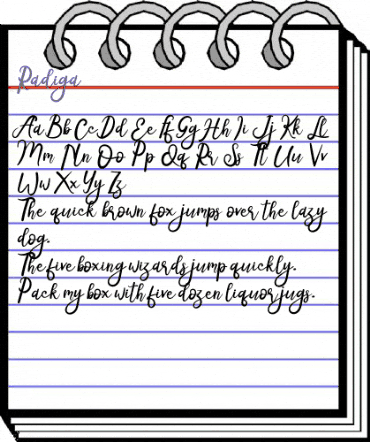 Radiga
Aa Bb Cc Dd Ee Ff Gg Hh Ii Jj Kk Ll
Mm Nn Oo Pp Qq Rr Ss Tt Uu Vv
Ww Xx Yy Zz
The quick brown fox jumps over the lazy
dog.
The five boxing wizards jump quickly.
Pack my box with five dozen liquor jugs.